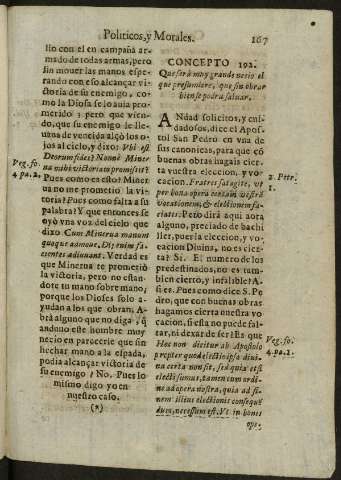 Politicos, y Morales. 167
lio con el en campaña ar-
mado de todas armas, pero
sin mouer las manos espe-
rando con esso alcançar vi-
ctoria de su enemigo, co-
mo la Diosa se lo auia pro-
metido; y pero que vien-
do, que su enemigo le lle-
uaua de vencida alçò los o-
jos al cielo, y dixo: Vbi est
Deorum fides? Nonnè Miner-
ua mihi victoriam promisit?
Veg. fo.
4. pa. 2.
Pues como es esto? Minerua
no me prometiò la vi-
ctoria? Pues como falta a su
palabra? Y que entonces se
oyò vna voz del cielo que
dixo Cum Minerua manum
quoque admoue, Dij enim fa-
cientes adiuuant. Verdad es
que Minerua te prometiò
la victoria, pero no estan-
dote tu mano sobre mano,
porque los Dioses solo a-
yudan a los que obran. A-
brà alguno que no diga q̃
anduuo este hombre muy
necio en parecerle que sin
hechar mano a la espada,
podia alcançar victoria de
su enemigo? No. Pues lo
mismo digo yo en
nuestro caso.
(*)
CONCEPTO 192.
Que serà muy grande necio el
que presumiere, que sin obrar
bien se podra saluar.
ANdad solicitos, y cui-
dadosos, dize el Apos-
tol San Pedro en vna de
sus canonicas, para que cõ
buenas obras hagais cierta
vuestra eleccion, y vo-
cacion. Fratres satagite, vt
per bona opera certam vestrã
vocationem, & electionem fa-
ciatis.
2. Petr.
1.
Pero dirà aqui aora
alguno, preciado de bachi-
ller, pues la eleccion, y vo-
cacion Diuina, no es cier-
ta? Si. El numero de los
predestinados, no es tam-
bien cierto, y infalible? A-
si es. Pues como dize S. Pe-
dro, que con buenas obras
hagamos cierta nuestra vo-
cacion, si esta no puede fal-
tar, ni dexar de ser? Es que
Hoc non dicitur ab Apostolo
propter quod electio ipsa diui-
na certa non sit, sed quia etsi
electi sumus, tamen cum ordi-
ne ad opera nostra, quia ad fi-
nem illius electionis consequē
dum, necessum est. Vt in bonis
Veg. fo.
4. pa. 1.
ope-